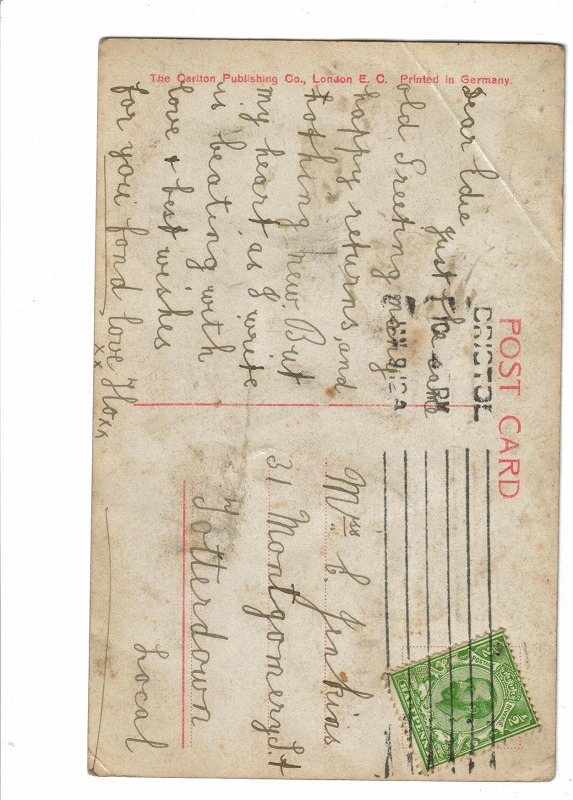 POST CARD
The Carlton Publishing Co., London E. C. Printed in Germany.
BRISTOL
Dear Edie just the same
old Greeting many
happy returns, and
nothing new. But
my heart as I write
is beating with
love & best wishes
for you fond love Flo xx
xx
Miss E Jenkins
31 Montgomery St
Totterdown
Local
1/2
1/2